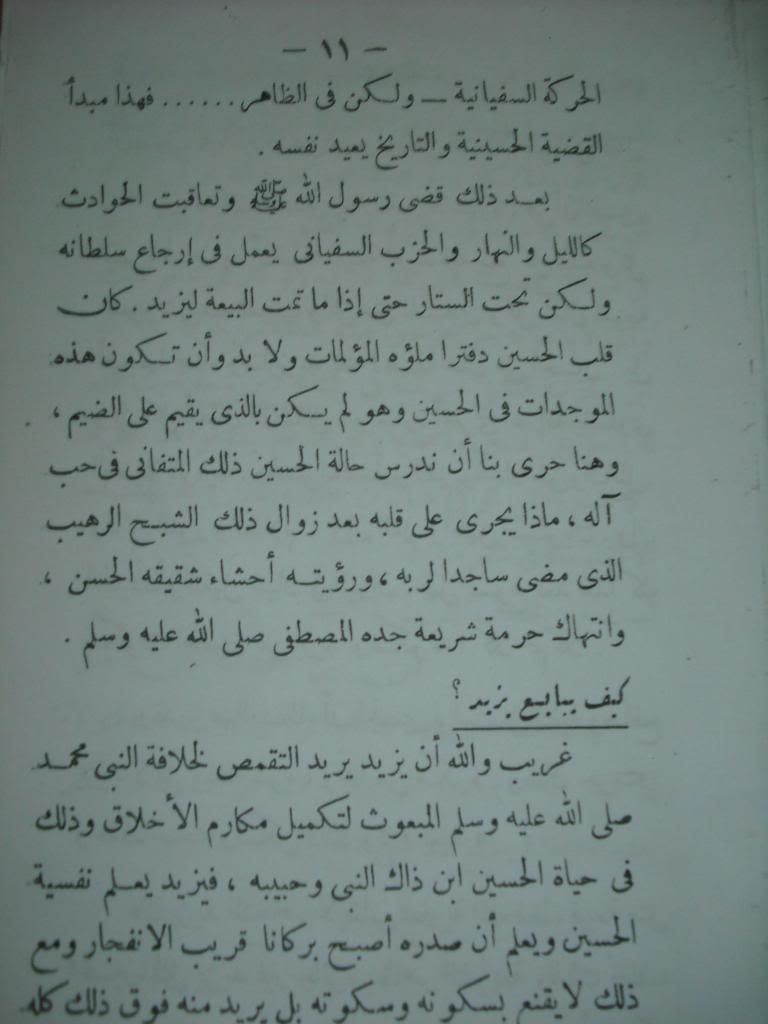 — ١١ —
الحركة السفيانية — ولكن فى الظاهر...... فهذا مبدأ
القضية الحسينية والتاريخ يعيد نفسه .
بعد ذلك قضى رسول الله ﷺ وتعاقبت الحوادث
كالليل والنهار والحزب السفيانى يعمل فى إرجاع سلطانه
ولكن تحت الستار حتى إذا ما تمت البيعة ليزيد . كان
قلب الحسين دفترا ملؤه المؤلمات ولا بد وأن تكون هذه
الموجدات فى الحسين وهو لم يكن بالذى يقيم على الضيم ،
وهنا حرى بنا أن ندرس حالة الحسين ذلك المتفانى فى حب
آله ، ماذا يجرى على قلبه بعد زوال ذلك الشبح الرهيب
الذى مضى ساجدا لربه ، ورؤيته أحشاء شقيقه الحسن ،
وانتهاك حرمة شريعة جده المصطفى صلى الله عليه وسلم .
كيف يبايع يزيد ؟
غريب والله أن يزيد يريد التقمص لخلافة النبى محمد
صلى الله عليه وسلم المبعوث لتكميل مكارم الأخلاق وذلك
فى حياة الحسين ابن ذاك النبى وحبيبه ، فيزيد يعلم نفسية
الحسين ويعلم أن صدره أصبح بركانا قريب الانفجار ومع
ذلك لا يقنع بسكونه وسكوته بل يريد منه فوق ذلك كله